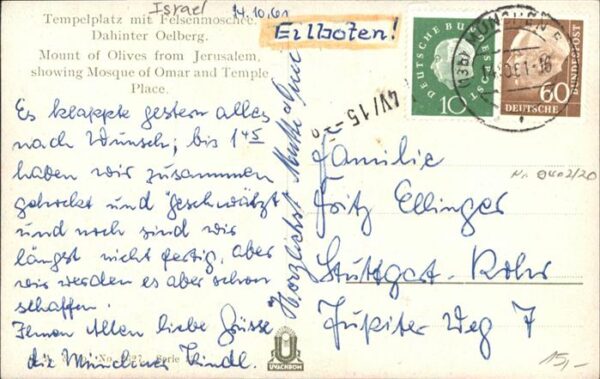 Israel 14.10.61
Tempelplatz mit Felsenmoschee.
Dahinter Oelberg.
Mount of Olives from Jerusalem,
showing Mosque of Omar and Temple
Place.
Eilboten!
DEUTSCHE BUNDESPOST
10
MÜNCHEN
DEUTSCHE BUNDESPOST
60
4V/15
Es klappte gestern alles
nach Wunsch; bis 1 45
haben wir zusammen
gehockt und geschwätzt
und noch sind wir
längst nicht fertig, aber
wir werden es aber schon
schaffen.
Ihnen Allen liebe Grüsse
die Münchner Kindl.
Herzlichst
Familie
Fritz Ellinger
Stuttgart-Rohr
Jupiter Weg 7
Nr. 0402/20
UVACHROM
Serie
15,-